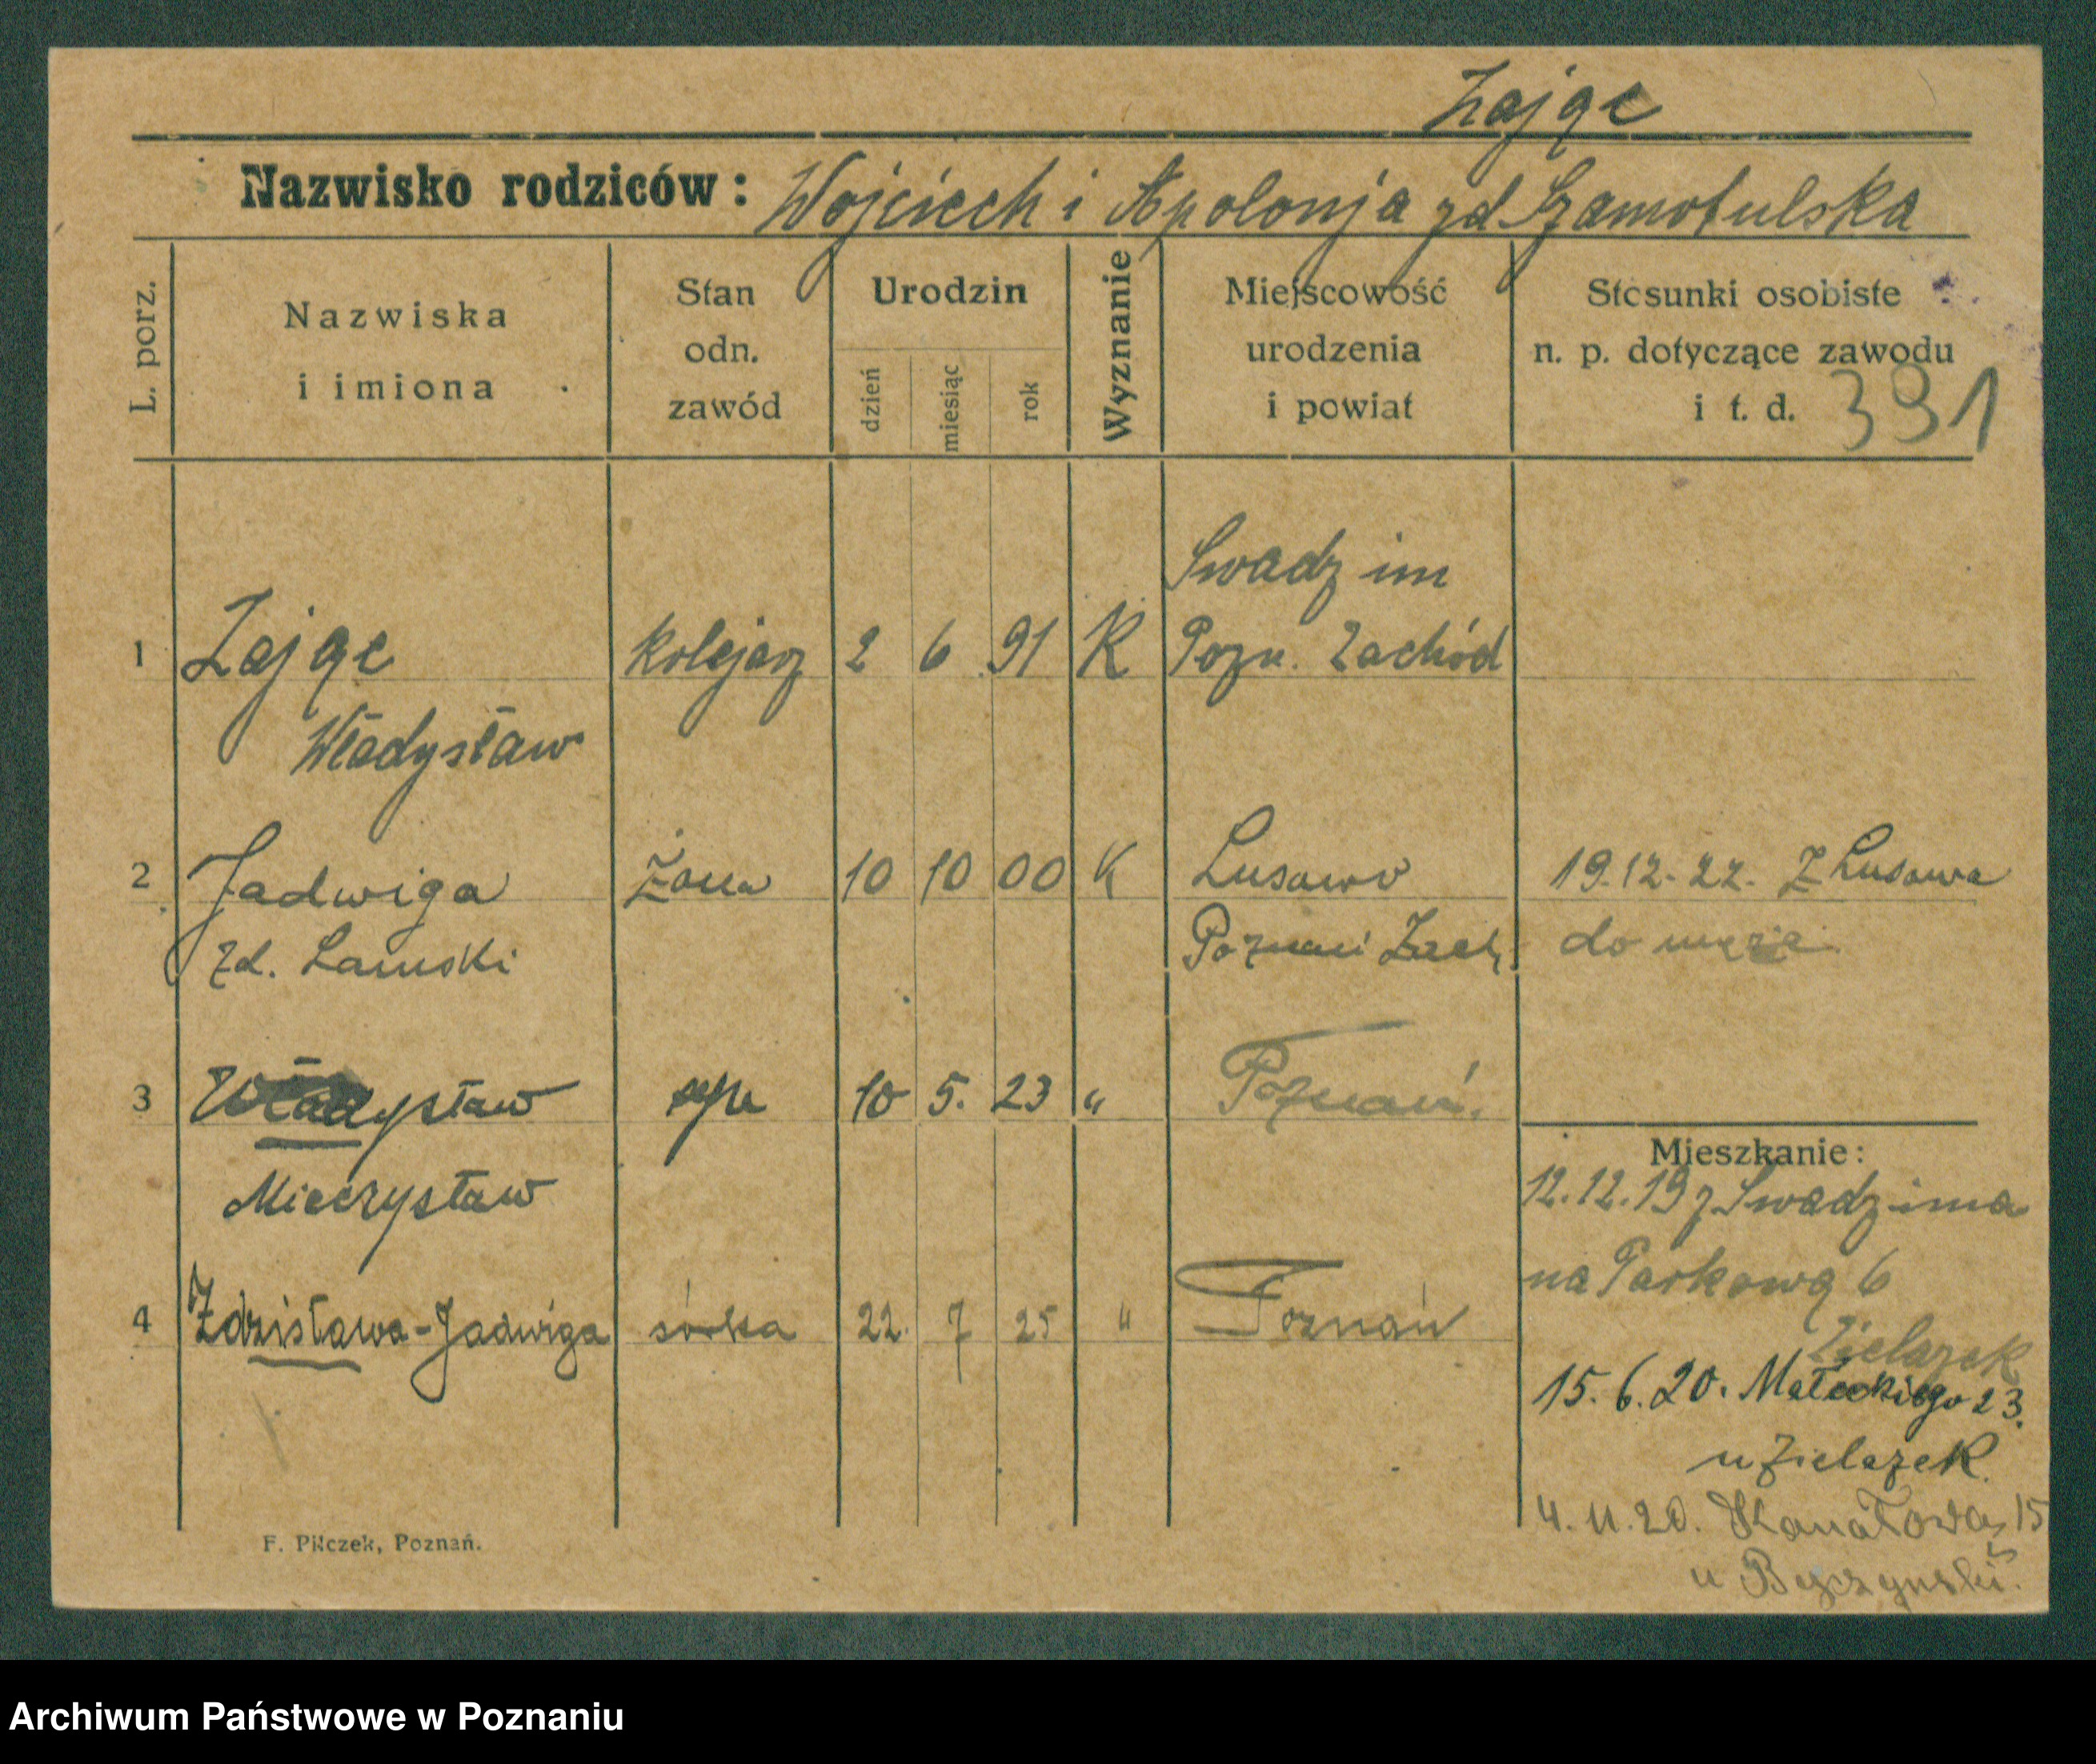 Zając
Nazwisko rodziców: Wojciech i Apolonja zd Szamotulska
L. porz.
Nazwiska
i imiona
Stan
odn.
zawód
Urodzin
dzień
miesiąc
rok
Wyznanie
Miejscowość
urodzenia
i powiat
Stosunki osobiste
n. p. dotyczące zawodu
i t. d.
391
Swadzim
1 Zając kolejarz 2 6 91 K Pozn. Zachód
Władysław
2 Jadwiga Żona 10 10 00 K Lusowo 19.12.22. Z Lusowa
zd. Lamski Poznań Zach. do męża
3 Władysław syn 10 5. 23 " Poznań.
Mieczysław
4 Zdzisława-Jadwiga córka 22. 7 25 " Poznań
Mieszkanie:
12.12.19 z Swadzima
na Parkową 6
Zielazek
15.6.20. Małeckiego 23.
u Zielazek.
4.11.20. Kanałowa 15
u
F. Pilczek, Poznań.
Archiwum Państwowe w Poznaniu